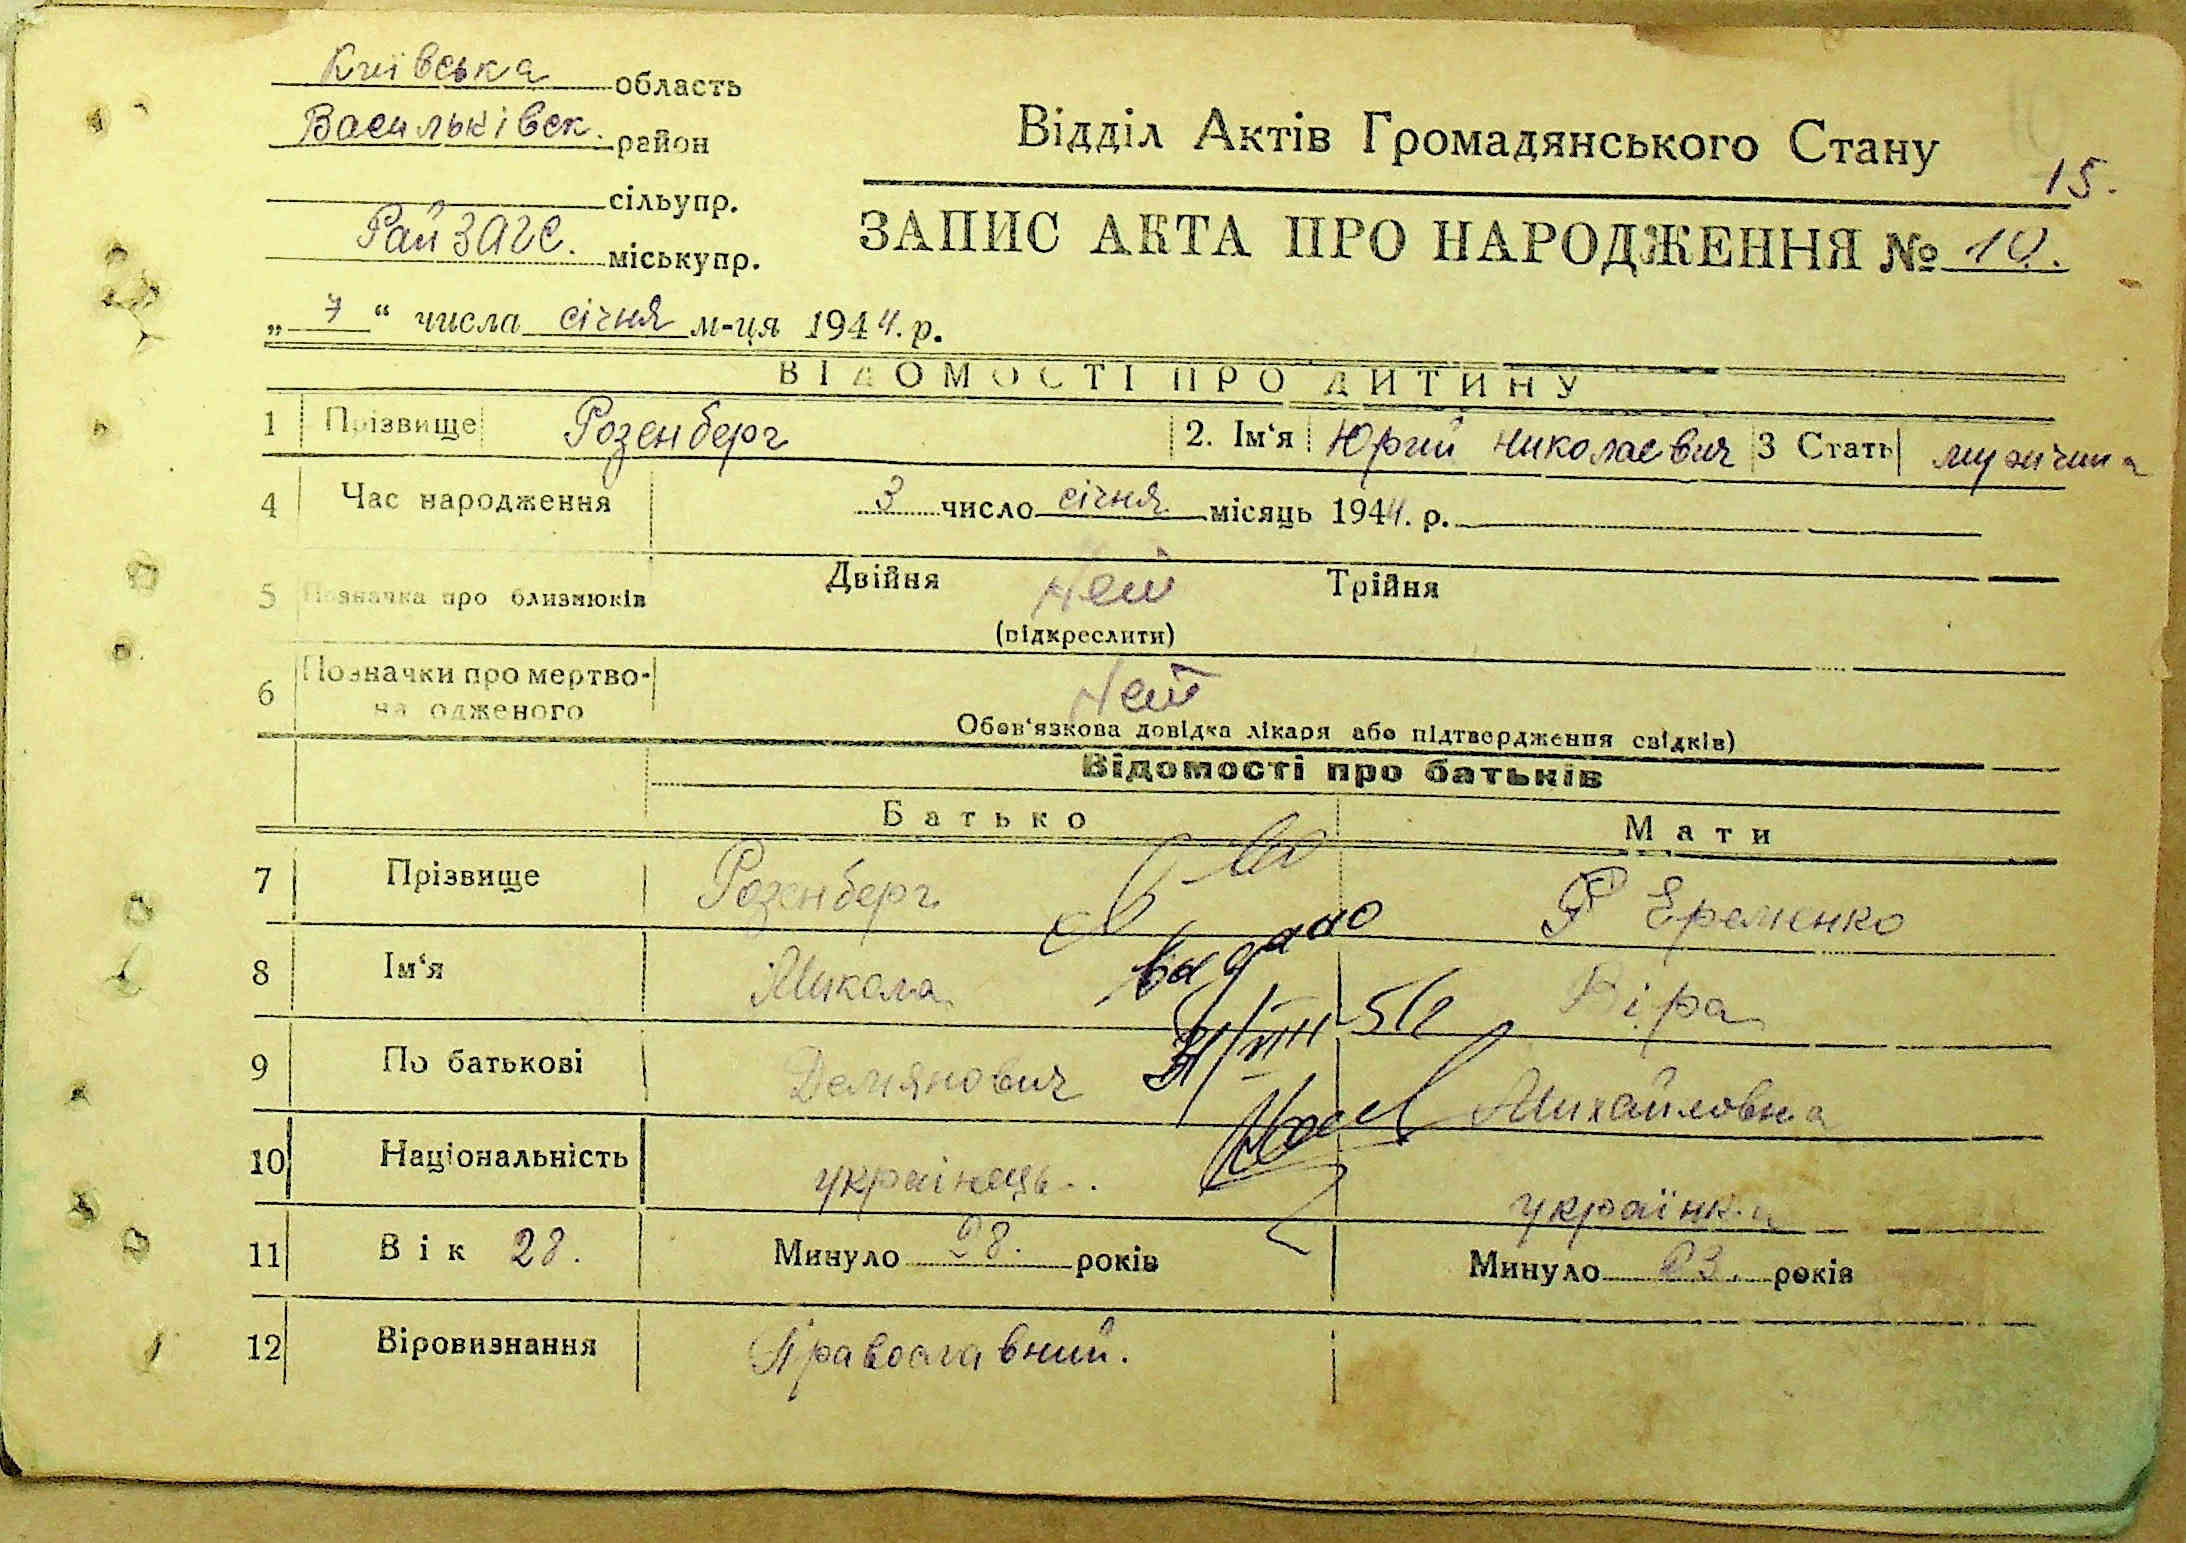 Київська область
Васильківск. район
сільупр.
РайЗАГС. міськупр.
Відділ Актів Громадянського Стану
15.
ЗАПИС АКТА ПРО НАРОДЖЕННЯ № 10.
„ 7 “ числа січня м-ця 1944. р.
ВІДОМОСТІ ПРО ДИТИНУ
1 Прізвище Розенберг 2. Ім‘я Юрий Николаевич 3 Стать мужчина
4 Час народження 3 число січня місяць 1944. р.
5 Позначка про близнюків Двійня Нет Трійня
(підкреслити)
6 Позначки про мертво-
на одженого
Нет
Обов‘язкова довідка лікаря або підтвердження свідків)
Відомості про батьків
Батько Мати
7 Прізвище Розенберг Р Еременко
8 Ім‘я Микола Віра
9 По батькові Демянович Михайловна
10 Національність українець.. українка
11 Вік 28. Минуло 28. років Минуло 23. років
12 Віровизнання Православний.
св-во
выдано
31/VIII-56